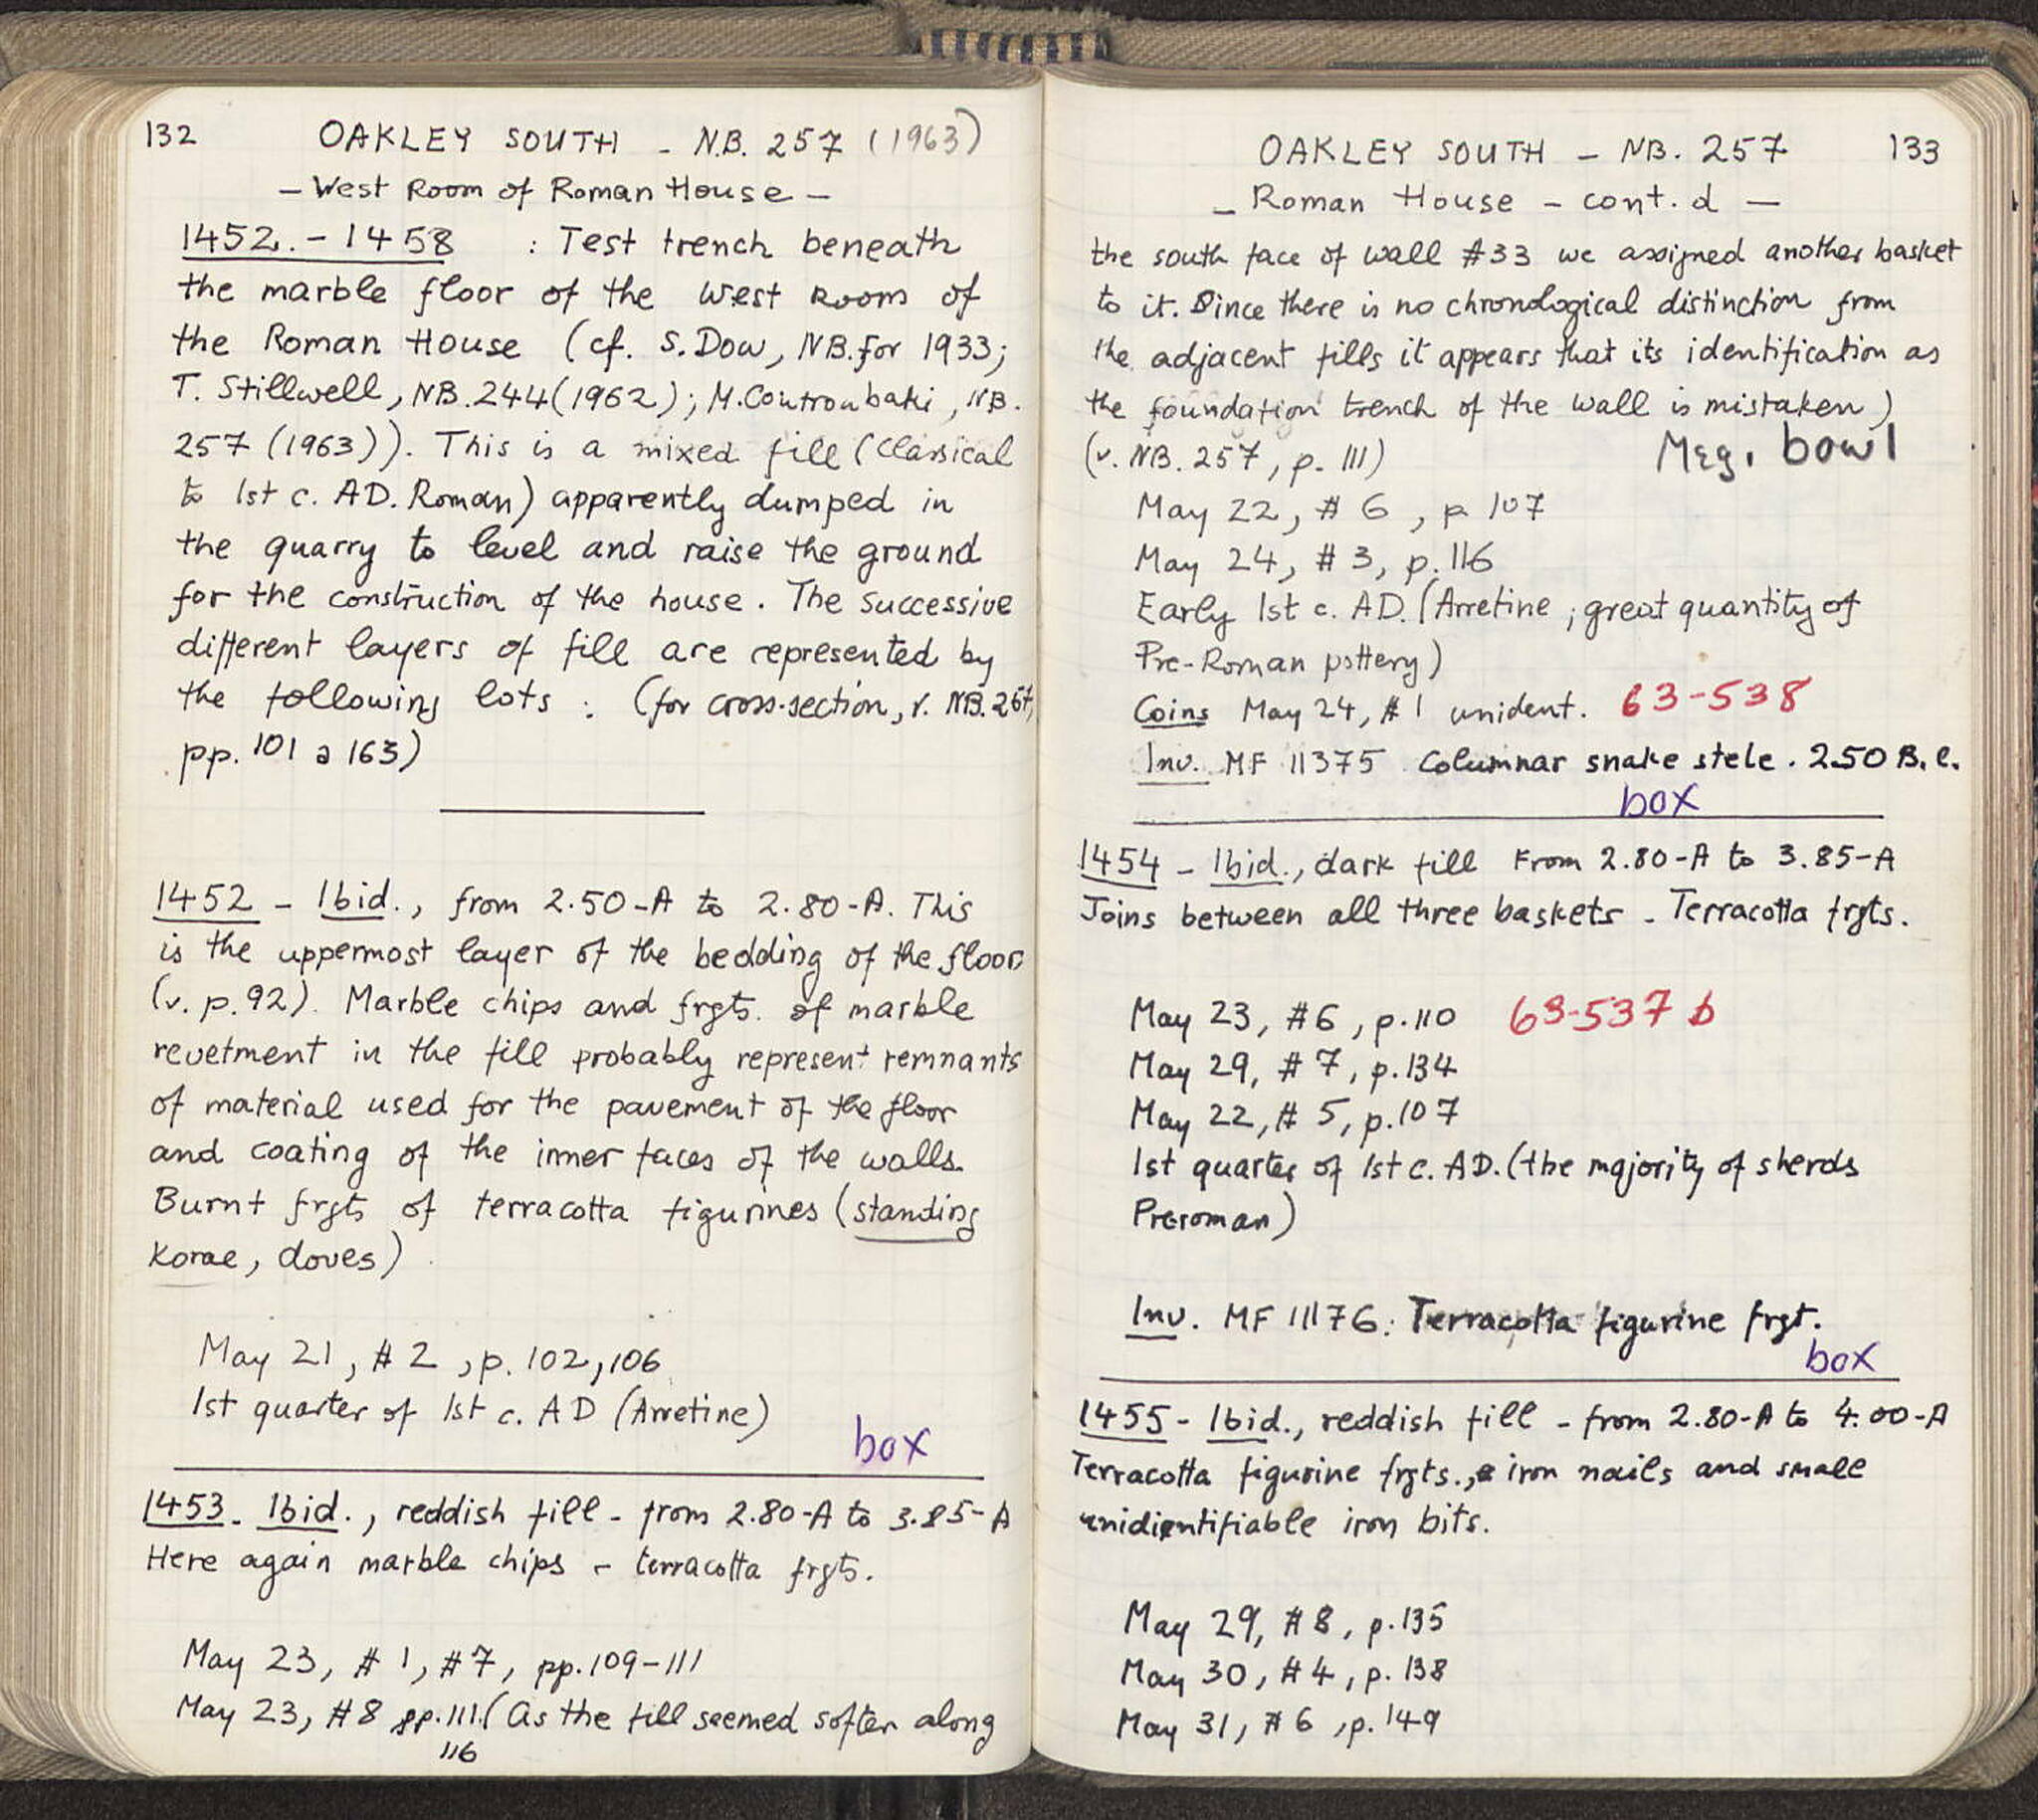 132 OAKLEY SOUTH - N.B. 257 (1963)
- West Room of Roman House -
1452. - 1458 : Test trench beneath
the marble floor of the West Room of
the Roman House (cf. S. Dow, NB. for 1933;
T. Stillwell, NB. 244 (1962); M. Coutroubaki, NB.
257 (1963)). This is a mixed fill (Classical
to 1st c. AD. Roman) apparently dumped in
the quarry to level and raise the ground
for the construction of the house. The successive
different layers of fill are represented by
the following lots : (for cross-section, v. NB. 257,
pp. 101 a 163)
1452 - Ibid., from 2.50-A to 2.80-A. This
is the uppermost layer of the bedding of the floor
(v. p. 92). Marble chips and frgts. of marble
revetment in the fill probably represent remnants
of material used for the pavement of the floor
and coating of the inner faces of the walls.
Burnt frgts of terracotta figurines (standing
Korae, doves)
May 21, #2, p. 102, 106
1st quarter of 1st c. AD (Arretine)
box
1453 - Ibid., reddish fill - from 2.80-A to 3.85-A
Here again marble chips - terracotta frgts.
May 23, #1, #7, pp. 109-111
May 23, #8 pp. 111. (As the fill seemed softer along
116
OAKLEY SOUTH - NB. 257 133
- Roman House - cont.d -
the south face of wall #33 we assigned another basket
to it. Since there is no chronological distinction from
the adjacent fills it appears that its identification as
the foundation trench of the wall is mistaken)
(v. NB. 257, p. 111) Meg. bowl
May 22, #6, p 107
May 24, #3, p. 116
Early 1st c. AD. (Arretine; great quantity of
Pre-Roman pottery)
Coins May 24, #1 unident. 63-538
Inv. MF 11375 Columnar snake stele. 250 B.C.
box
1454 - Ibid., dark fill From 2.80-A to 3.85-A
Joins between all three baskets - Terracotta frgts.
May 23, #6, p. 110 63-537 b
May 29, #7, p. 134
May 22, #5, p. 107
1st quarter of 1st c. AD. (the majority of sherds
Preroman)
Inv. MF 11176: Terracotta figurine frgt.
box
1455 - Ibid., reddish fill - from 2.80-A to 4.00-A
Terracotta figurine frgts., iron nails and small
unidientifiable iron bits.
May 29, #8, p. 135
May 30, #4, p. 138
May 31, #6, p. 149